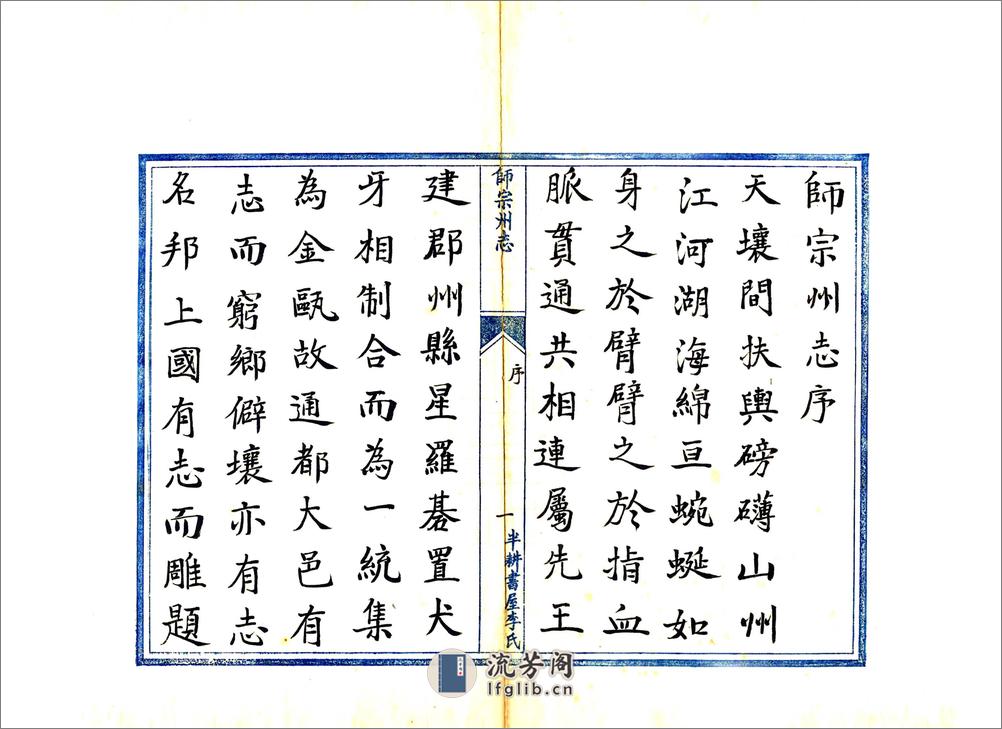 師宗州志序
天壤間扶輿磅礴山州
江河湖海綿亘蜿蜒如
身之於臂臂之於指血
脈貫通共相連屬先王
師宗州志
序
一
半耕書屋李氏
建郡州縣星羅碁置犬
牙相制合而為一統集
為金甌故通都大邑有
志而窮鄉僻壤亦有志
名邦上國有志而雕題
流芳阁
lfglib.cn